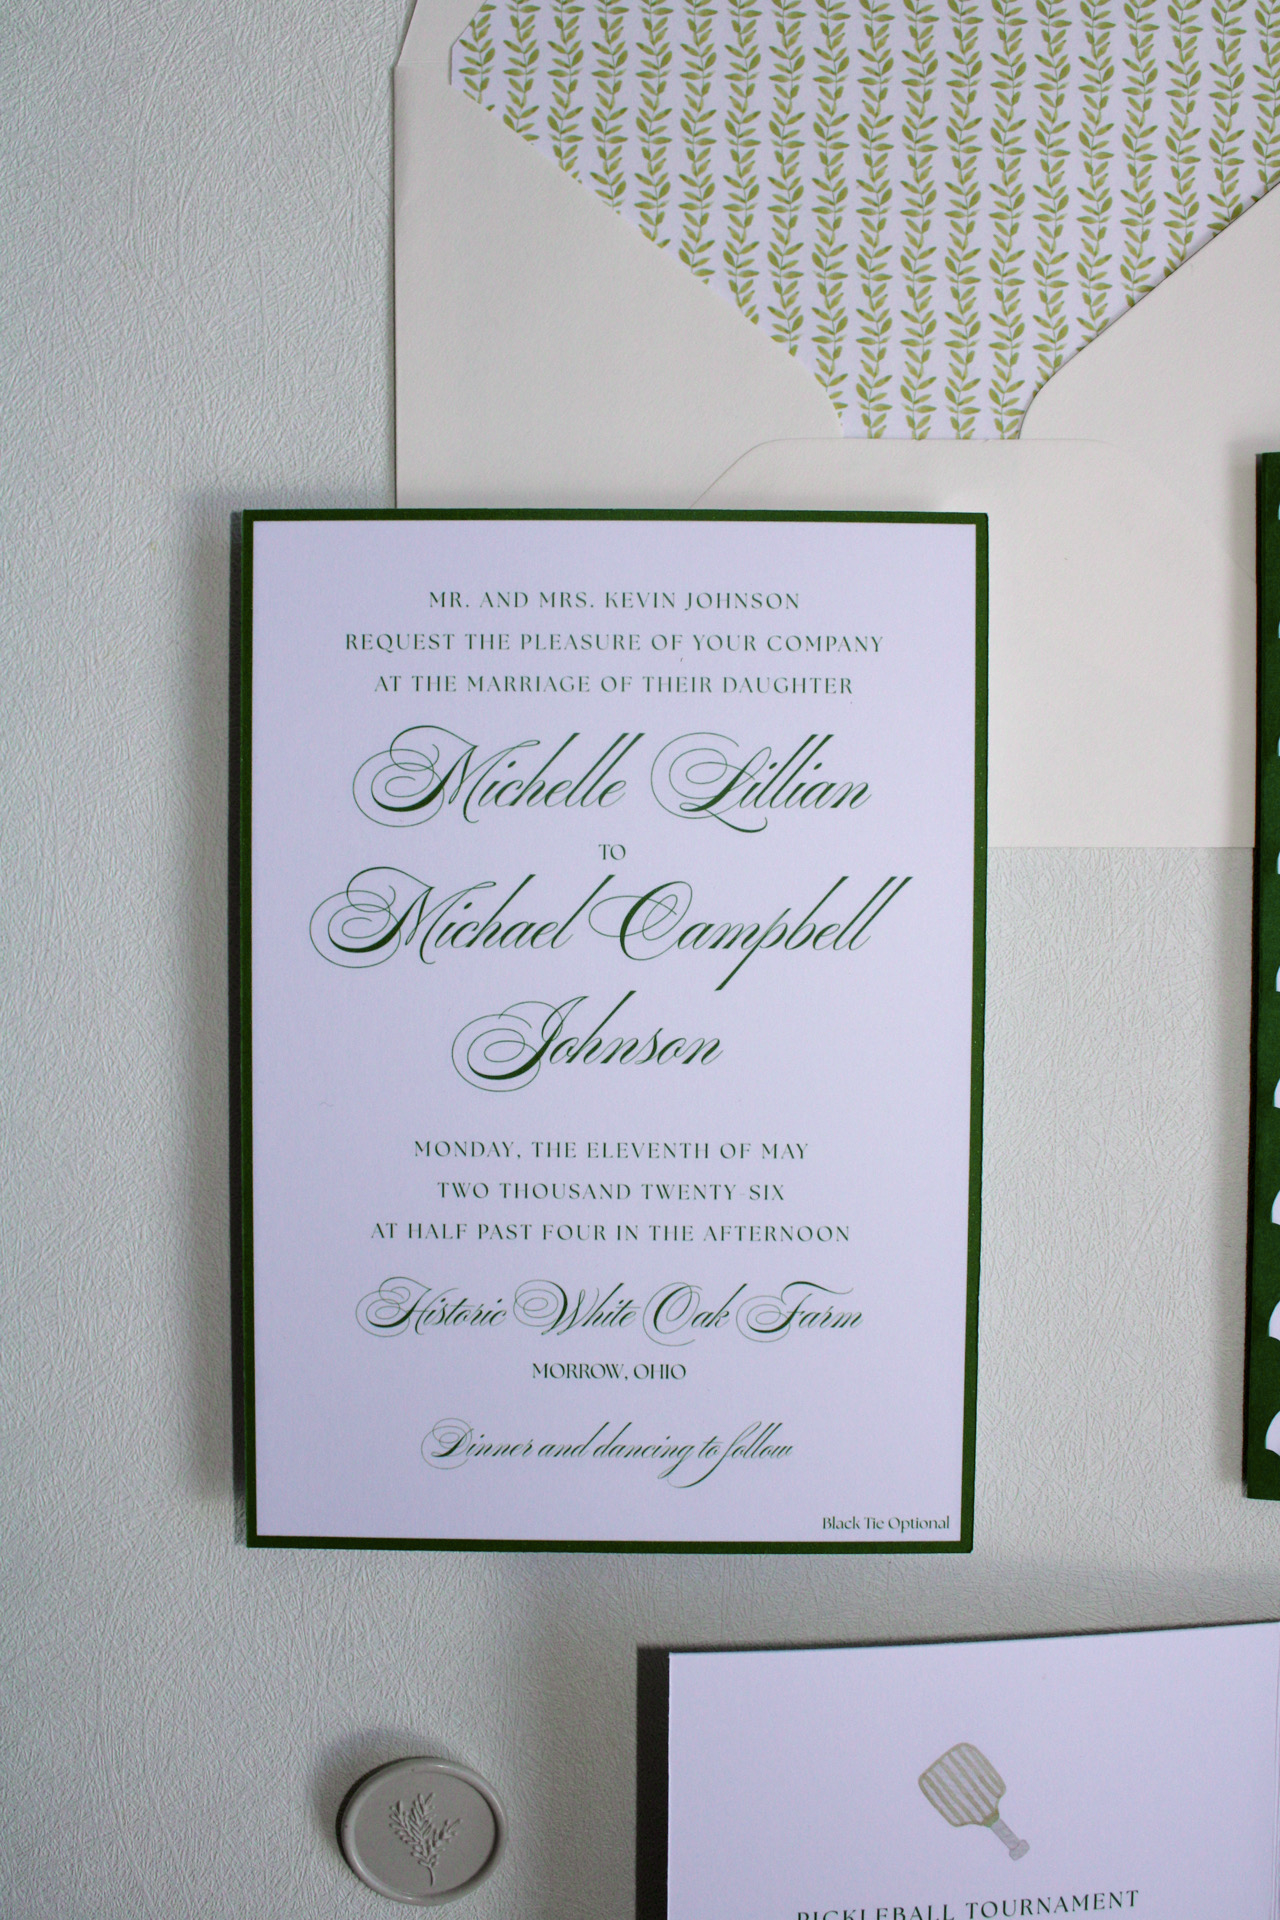 MR. AND MRS. KEVIN JOHNSON
REQUEST THE PLEASURE OF YOUR COMPANY
AT THE MARRIAGE OF THEIR DAUGHTER
Michelle Lillian
TO
Michael Campbell
Johnson
MONDAY, THE ELEVENTH OF MAY
TWO THOUSAND TWENTY-SIX
AT HALF PAST FOUR IN THE AFTERNOON
Historic White Oak Farm
MORROW, OHIO
Dinner and dancing to follow
Black Tie Optional
PICKLEBALL TOURNAMENT